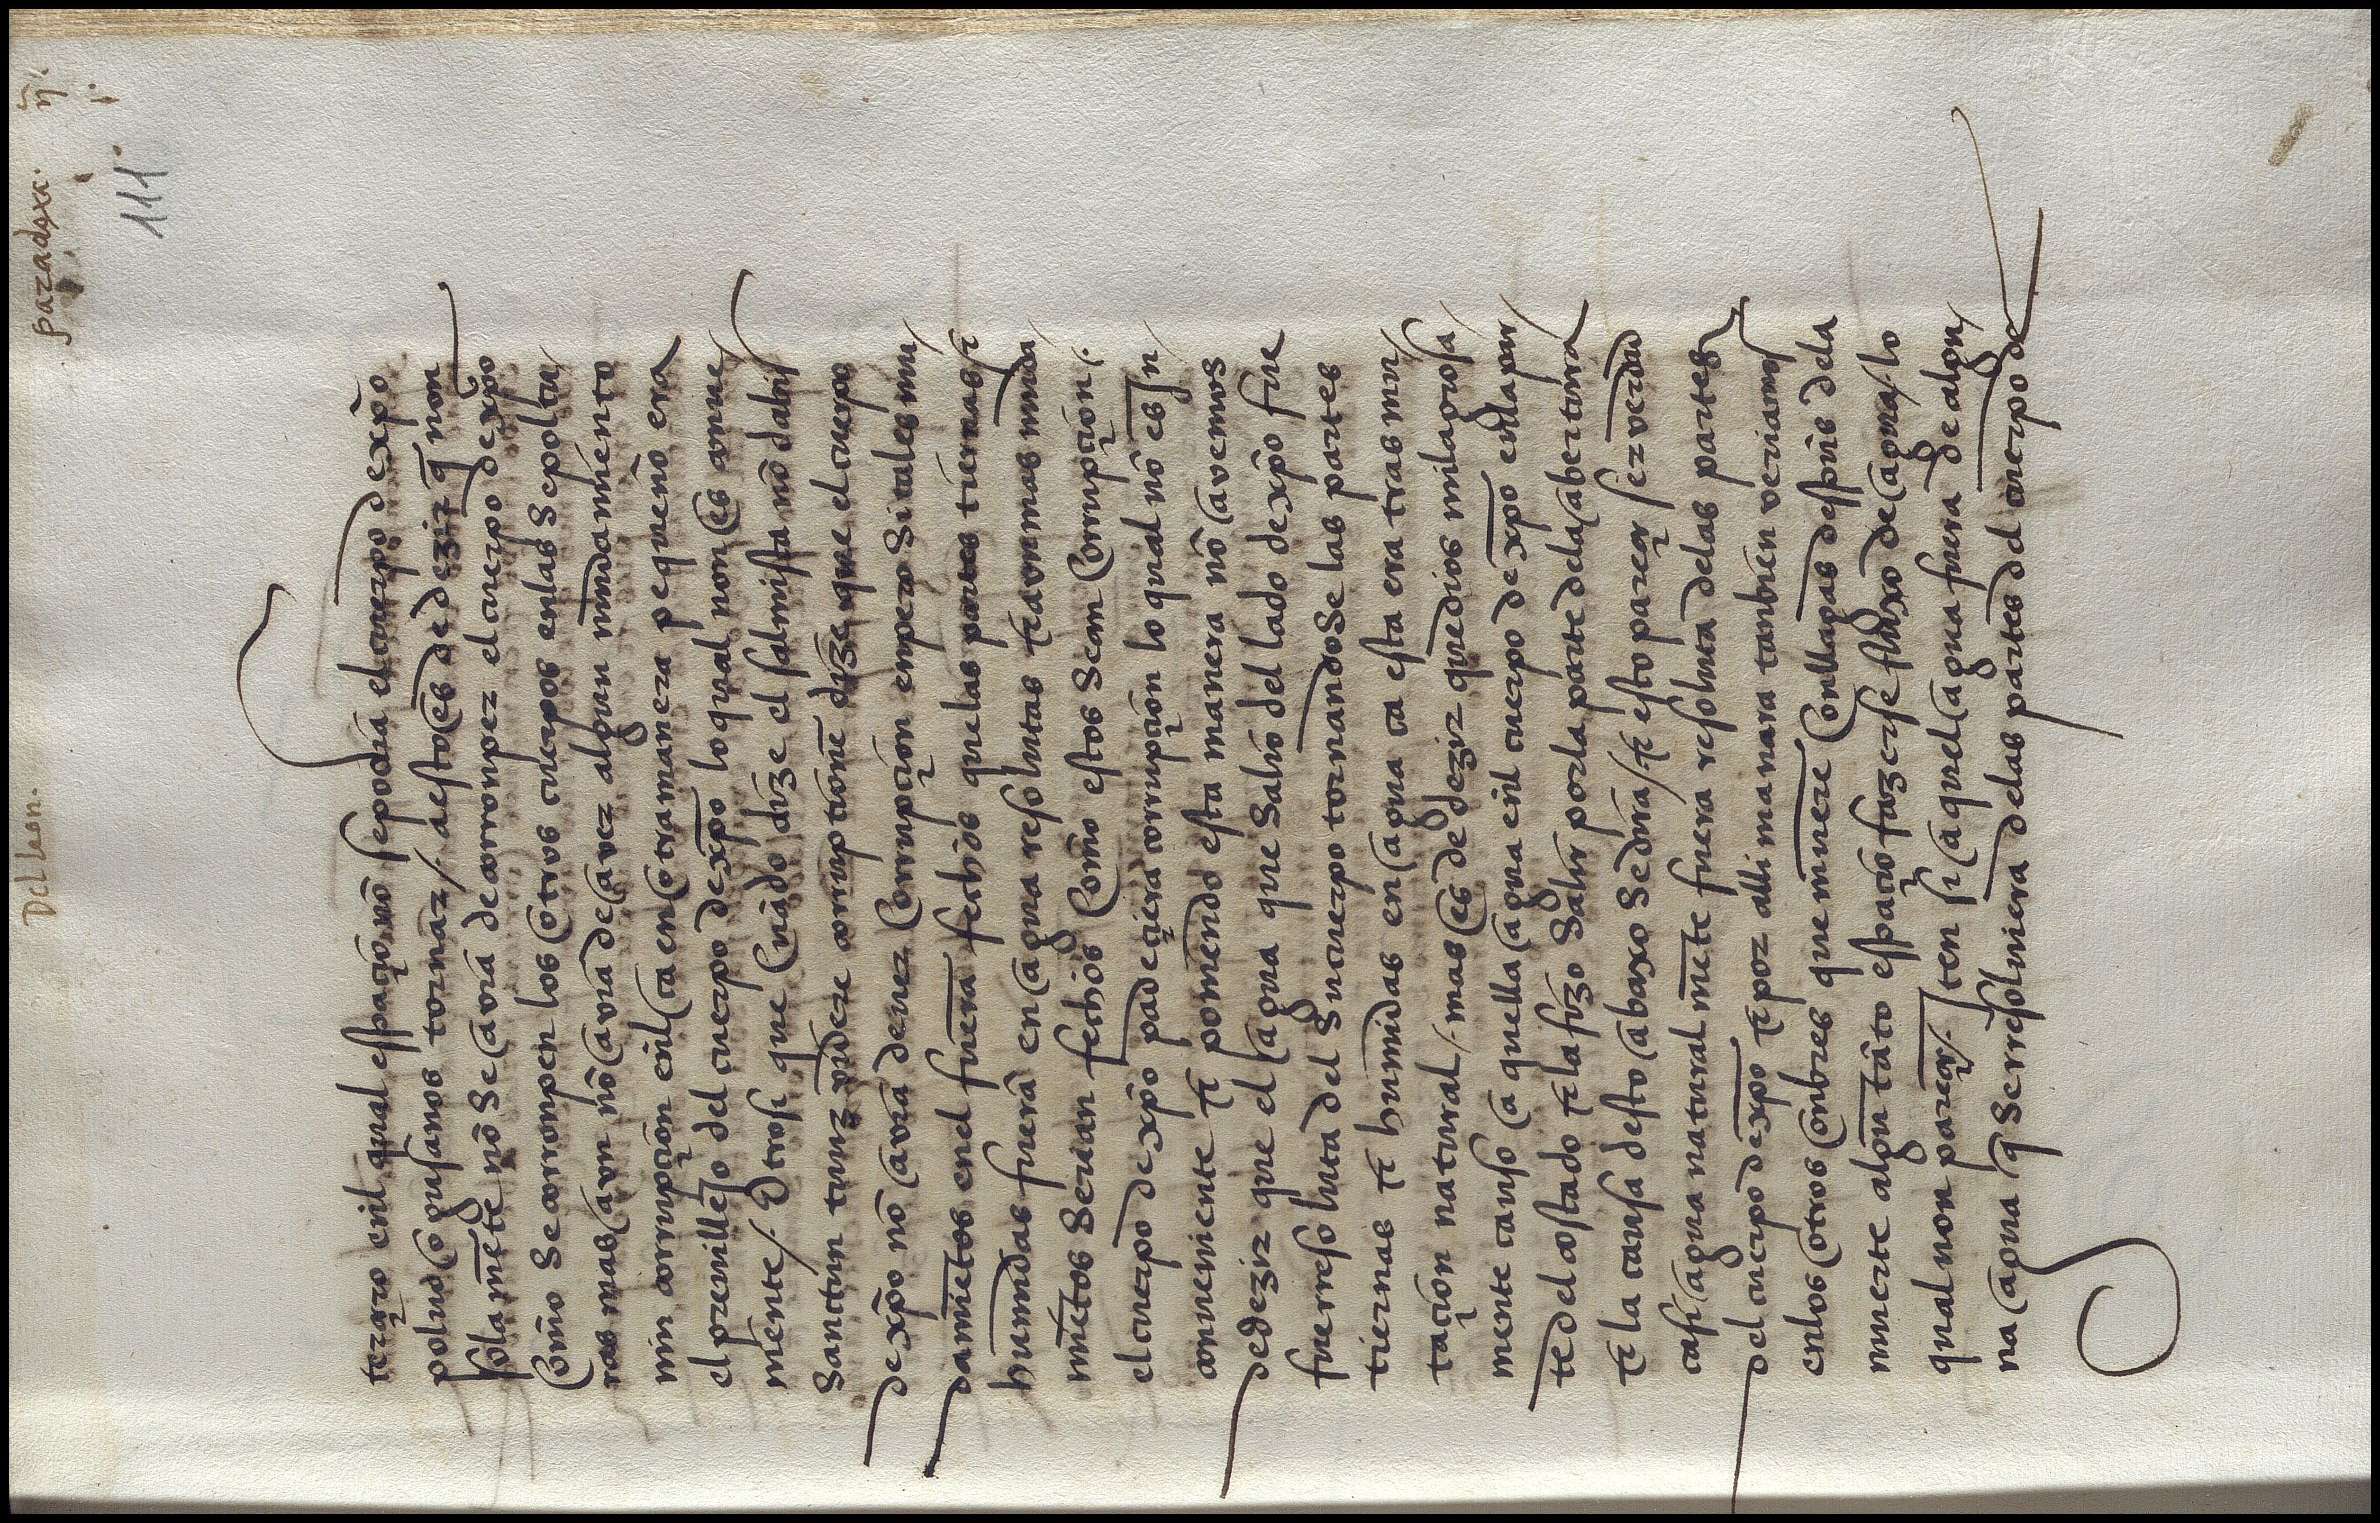 Del leon. paradox. ij.
111.
terçero enl qual espaçio nõ se podia el cuerpo de xpõ
poluo o gusanos tornar / a esto es de dezir q̃ non
sola mẽte nõ se avia de corronper el cuerpo de xpõ
como se corronpen los otros cuerpos en las sepoltu
ras mas avn nõ avia de aver algun mudamiento
nin corrupçion enl ca en otra manera pequeño era
el preuillejo del cuerpo de xpõ lo qual non es conue
niente /. Otrosi que cuãdo dize el salmista nõ dabis
sanctum tuum videre corruptionẽ dize que el cuerpo
de xpõ nõ avia de uer corrupçion enpero si tales mu
damiẽtos en el fuerã fechos que las partes tiernas τ
humidas fuerã en agua resolutas τ avn mas muda
miẽtos serian fechos como estos sean corrupçion /.
el cuerpo de xpõ padeçiera corrupçion lo qual nõ es In
conueniente τ poniendo esta manera nõ avemos
de dezir que el agua que salio del lado de xpõ fue
fue resoluta del su cuerpo tornando se las partes
tiernas τ humidas en agua ca esta era trasmu
taçion natural /. mas es de dezir que dios milagrosa
mente causo aquella agua enl cuerpo de xpõ en la par
te del costado τ la fizo salir por la parte de la abertura
τ la causa desto abaxo se dira / τ esto pareçe ser verdad
ca si agua natural mẽte fuera resoluta de las partes
del cuerpo de xpo τ por alli manara tanbien veriamos
en los otros onbres que muerẽ con llagas despues de la
muerte algun tãto espaçio fazerse fluxo de agua / lo
qual non pareçe /. Iten si aquel agua fuera de algu
na agua q̃ se resoluiera de las partes del cuerpo de